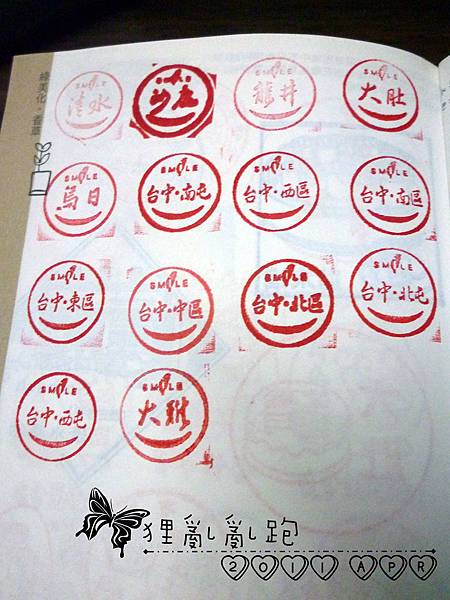 綠美化·香草
SMILE
清水
沙鹿
SMILE
龍井
SMILE
大肚
SMILE
烏日
SMILE
台中·南屯
SMILE
台中·西區
SMILE
台中·南區
SMILE
台中·東區
SMILE
台中·中區
SMILE
台中·北區
SMILE
台中·北屯
SMILE
台中·西屯
SMILE
大雅
狸亂亂跑
2011 APR